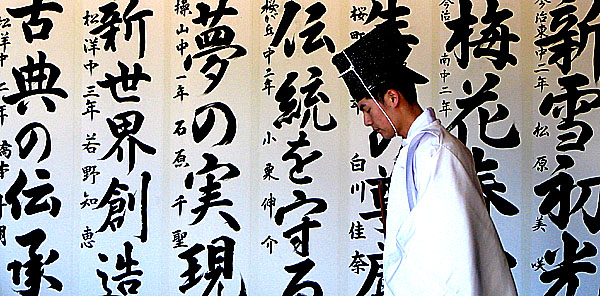 新雪初光
今治東中二年 松原美咲
梅花春
今治南中二年
生 の尊厳
桜町 白川佳奈
伝統を守る
桜が丘中二年 小東伸介
夢の実現
操山中一年 石原千聖
新世界創造
松洋中三年 若野知恵
古典の伝承
松洋中二年